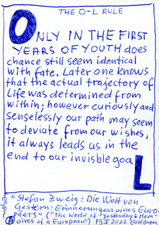 THE O-L RULE
ONLY IN THE FIRST
YEARS OF YOUTH does
chance still seem identical
with fate. Later one knows
that the actual trajectory of
Life was determined from
within; however curiously and
senselessly our path may seem
to deviate from our wishes,
it always leads us in the
end to our invisible goaL
Stefan Zweig: Die Welt von
Gestern: Erinnerungen eines Euro-
päers ("The World of Yesterday: Mem-
oires of a European") 1942